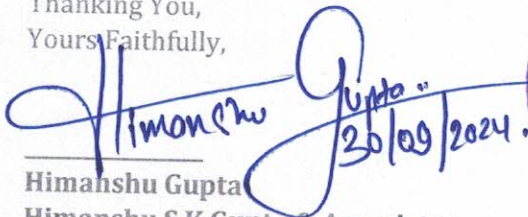 Thanking You,
Yours Faithfully,
Himanshu Gupta
30/09/2024.
Himanshu Gupta
Himanshu S K Gupta &